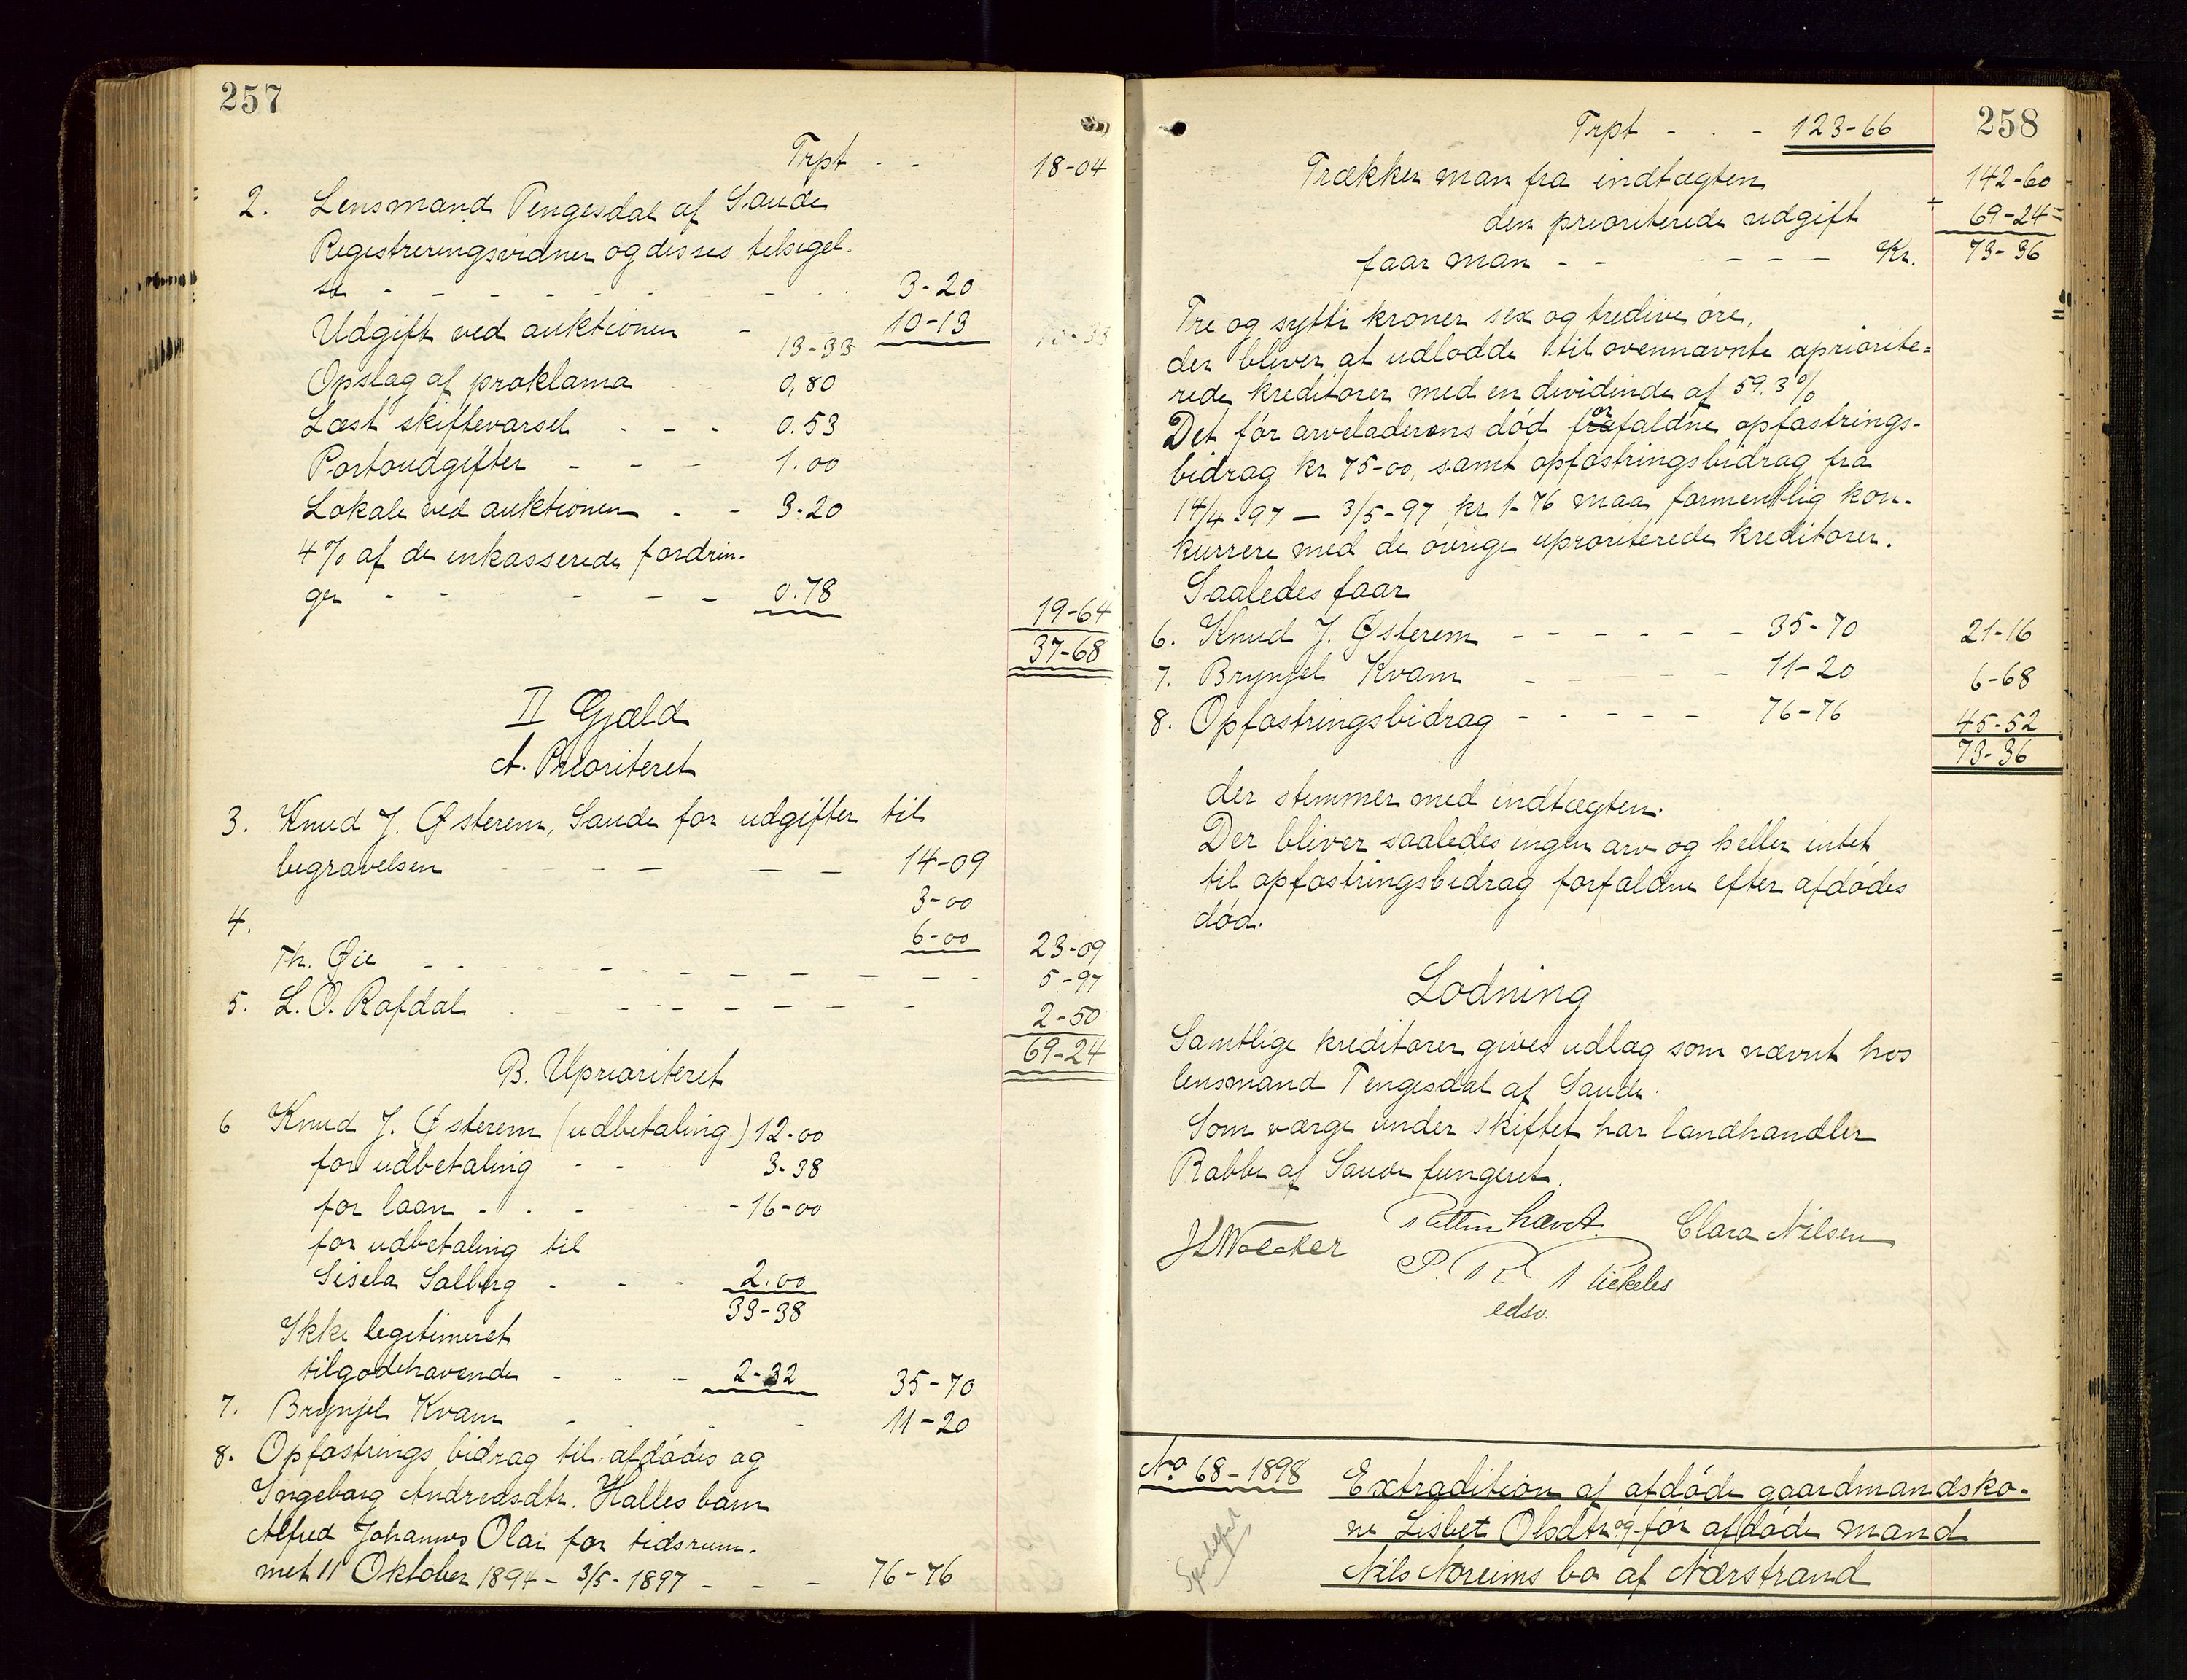 257
Trpt - - 18-04
2. Lensmand Tengesdal af Saude
Registreringsvidner og disses tilsigel-
se - - - - - - - 3-20
Udgift ved auktionen - - 10-13
13-33
Opslag af proklama 0,80
Læst skiftevarsel - - - 0.53
Portoudgifter - - - 1.00
Lokale ved auktionen - - 3-20
4% af de inkasserede fordrin-
ger - - - - - - 0.78 19-64
37-68
II Gjæld
A. Prioriteret
3. Knud J. Østerem, Saude for udgifter til
begravelsen - - - - 14-09
3-00
4.
6-00 23-09
Th. Øie - - - - - - - - - 5-97
5. L. O. Rafdal - - - - - - 2-50
69-24
B. Uprioriteret
6 Knud J. Østerem (udbetaling) 12-00
for udbetaling - - 3-38
for laan - - - - 16-00
for udbetaling til
Sisela Salberg - - 2.00
33-38
Ikke legitimeret
tilgodehavende - - - 2-32 35-70
7. Brynjel Kvam - - - - 11-20
8. Opfostrings bidrag til afdødes og
Ingeborg Andreasdtr. Halles barn
Alfred Johannes Olai for tidsrum-
met 11 Oktober 1894 - 3/5-1897 - - - 76-76
258
Trpt - - - 123-66
Trækker man fra indtægten 142-60
den prioriterede udgift ÷ 69-24=
faar man - - - - - - Kr. 73-36
Tre og sytti kroner sex og tredive øre,
der bliver at udlodde til ovennævnte upriorite=
rede kreditorer med en dividende af 59.3%
Det før arveladerens død forfaldne opfostrings-
bidrag kr 75-00, samt opfostringsbidrag fra
14/4-97 - 3/5-97 kr 1-76 maa formentlig kon-
kurrere med de øvrige uprioriterede kreditorer.
Saaledes faar
6. Knud J. Østerem - - - - - - 35-70 21-16
7. Brynjel Kvam - - - - - 11-20 6-68
8. Opfostringsbidrag - - - - - 76-76 45-52
73-36
der stemmer med indtægten.
Der bliver saaledes ingen arv og heller intet
til opfostringsbidrag forfaldne efter afdødes
død.
Lodning
Samtlige kreditorer gives udlæg som nævnt hos
lensmand Tengesdal af Saude.
Som værge under skiftet har landhandler
Rabbe af Saude fungeret.
Retten hævet. Clara Nilsen
edsv.
No 68-1898 Extradition af afdøde gaardmandsko-
ne Lisbet Olsdtr og før afdøde mand
Nils Noreims bo af Nærstrand